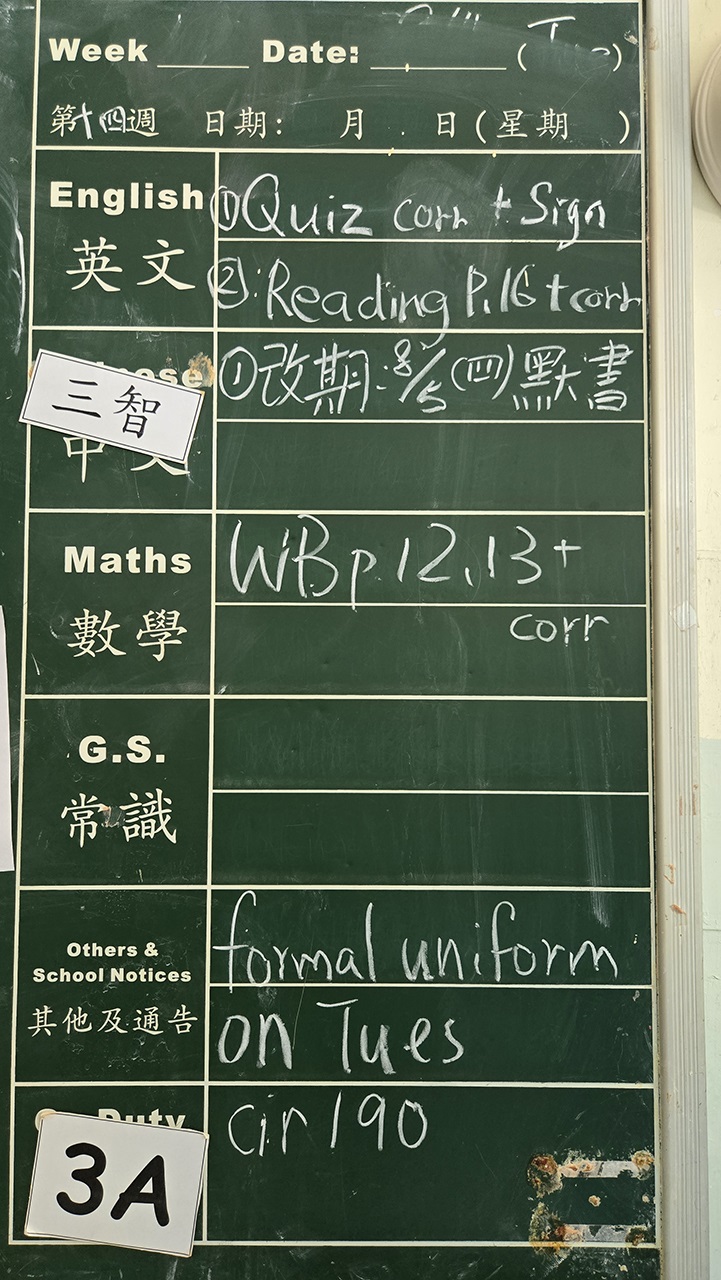 Week Date: ( )
第十四週 日期: 月 日(星期 )
English ①Quiz corr + Sign
英文 ②Reading P.16 + corr
①改期:8/5(四)默書
三智
Maths WBp 12,13+
數學 corr
G.S.
常識
Others & formal uniform
School Notices
其他及通告 on Tues
Duty cir 190
3A